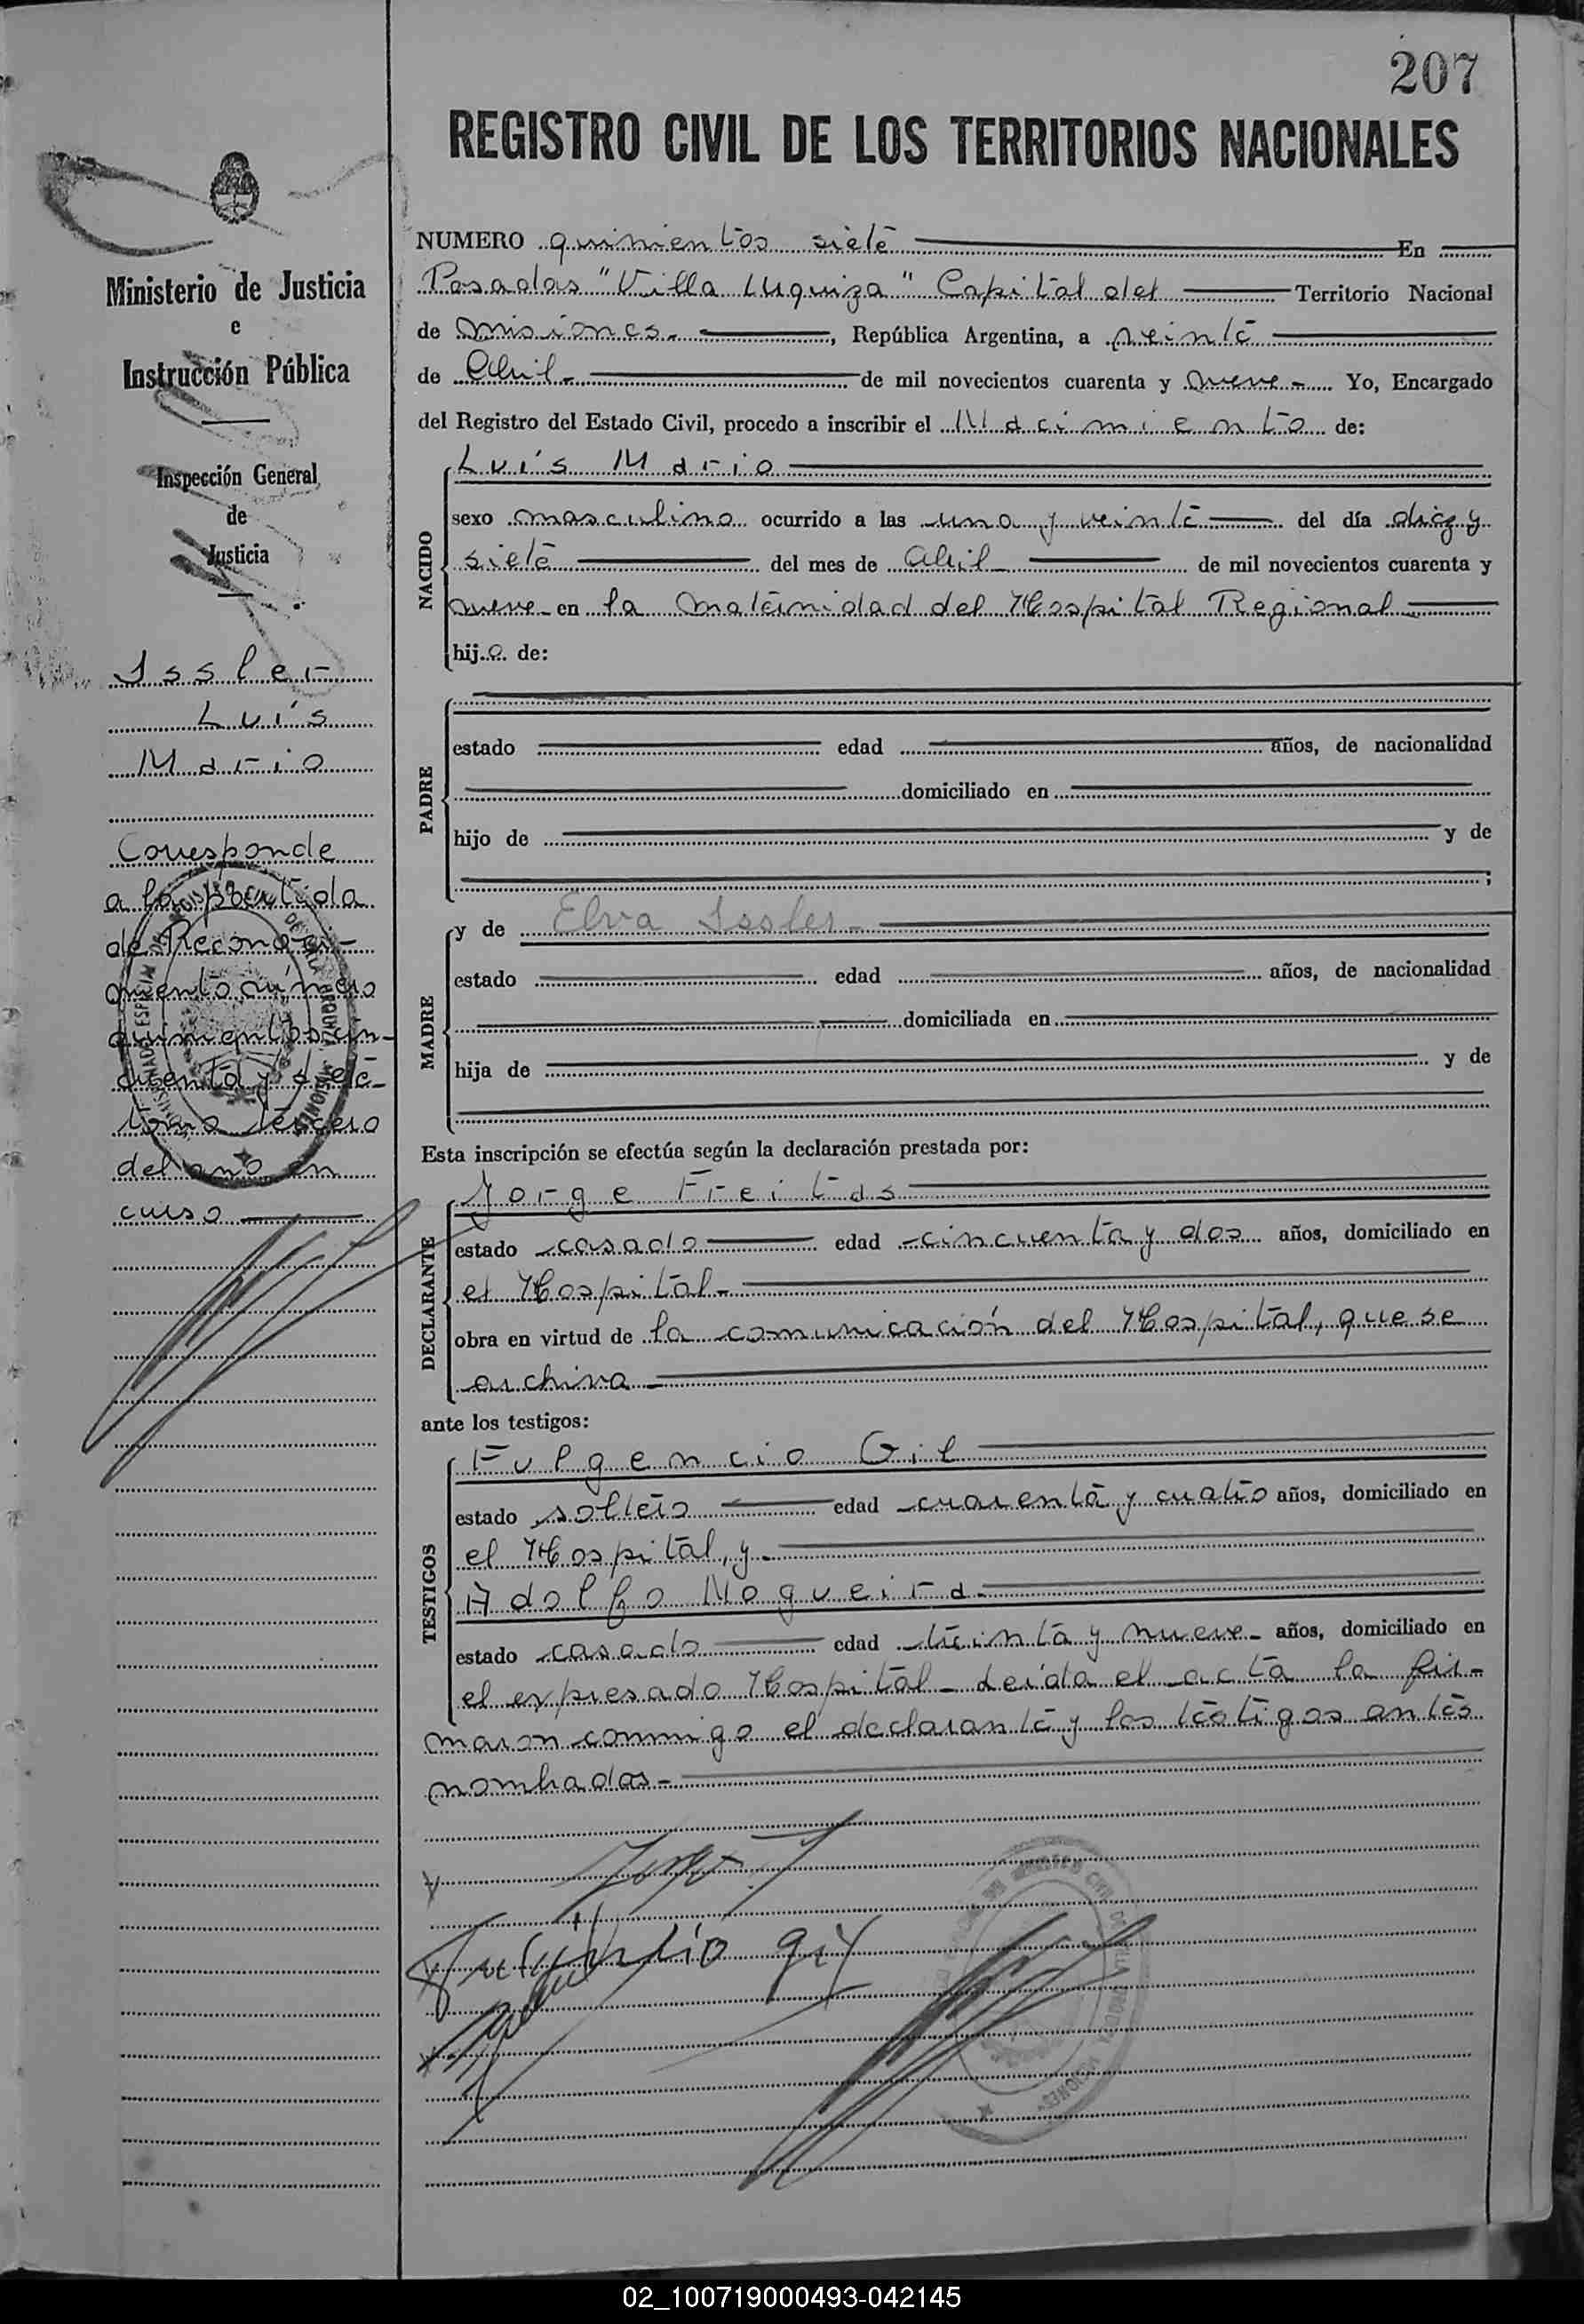 207
REGISTRO CIVIL DE LOS TERRITORIOS NACIONALES
Ministerio de Justicia
e
Instrucción Pública
Inspección General
de
Justicia
Issler
Luís
Mario
Corresponde
a la partida
de Reconoci-
miento número
quinientos cin-
cuenta y siete
tomo tercero
del año en
curso
NUMERO quinientos siete En
Posadas "Villa Urquiza" Capital del Territorio Nacional
de Misiones.-, República Argentina, a veinte
de Abril- de mil novecientos cuarenta y nueve-. Yo, Encargado
del Registro del Estado Civil, procedo a inscribir el Nacimiento de:
NACIDO
Luís Mario
sexo masculino ocurrido a las una y veinte del día diez y
siete del mes de Abril de mil novecientos cuarenta y
nueve- en la Maternidad del Hospital Regional
hijo de:
PADRE
estado edad años, de nacionalidad
domiciliado en
hijo de y de
;
MADRE
y de Elva Issler-
estado edad años, de nacionalidad
domiciliada en
hija de y de
Esta inscripción se efectúa según la declaración prestada por:
DECLARANTE
Jorge Freitas
estado casado edad cincuenta y dos años, domiciliado en
el Hospital-
obra en virtud de la comunicación del Hospital, que se
archiva-
ante los testigos:
TESTIGOS
Fulgencio Gil
estado soltero edad cuarenta y cuatro años, domiciliado en
el Hospital, y-
Adolfo Nogueira-
estado casado edad treinta y nueve- años, domiciliado en
el expresado Hospital- Leída el acta la fir-
maron conmigo el declarante y los testigos antes
nombrados-
02_100719000493-042145